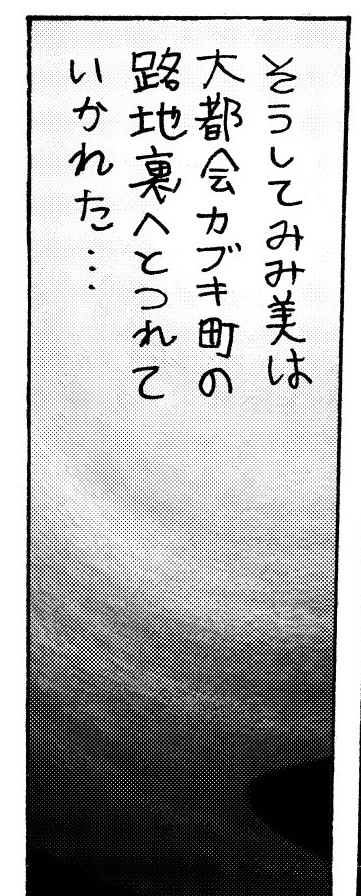 そうしてみみ美は
大都会カブキ町の
路地裏へとつれて
いかれた…